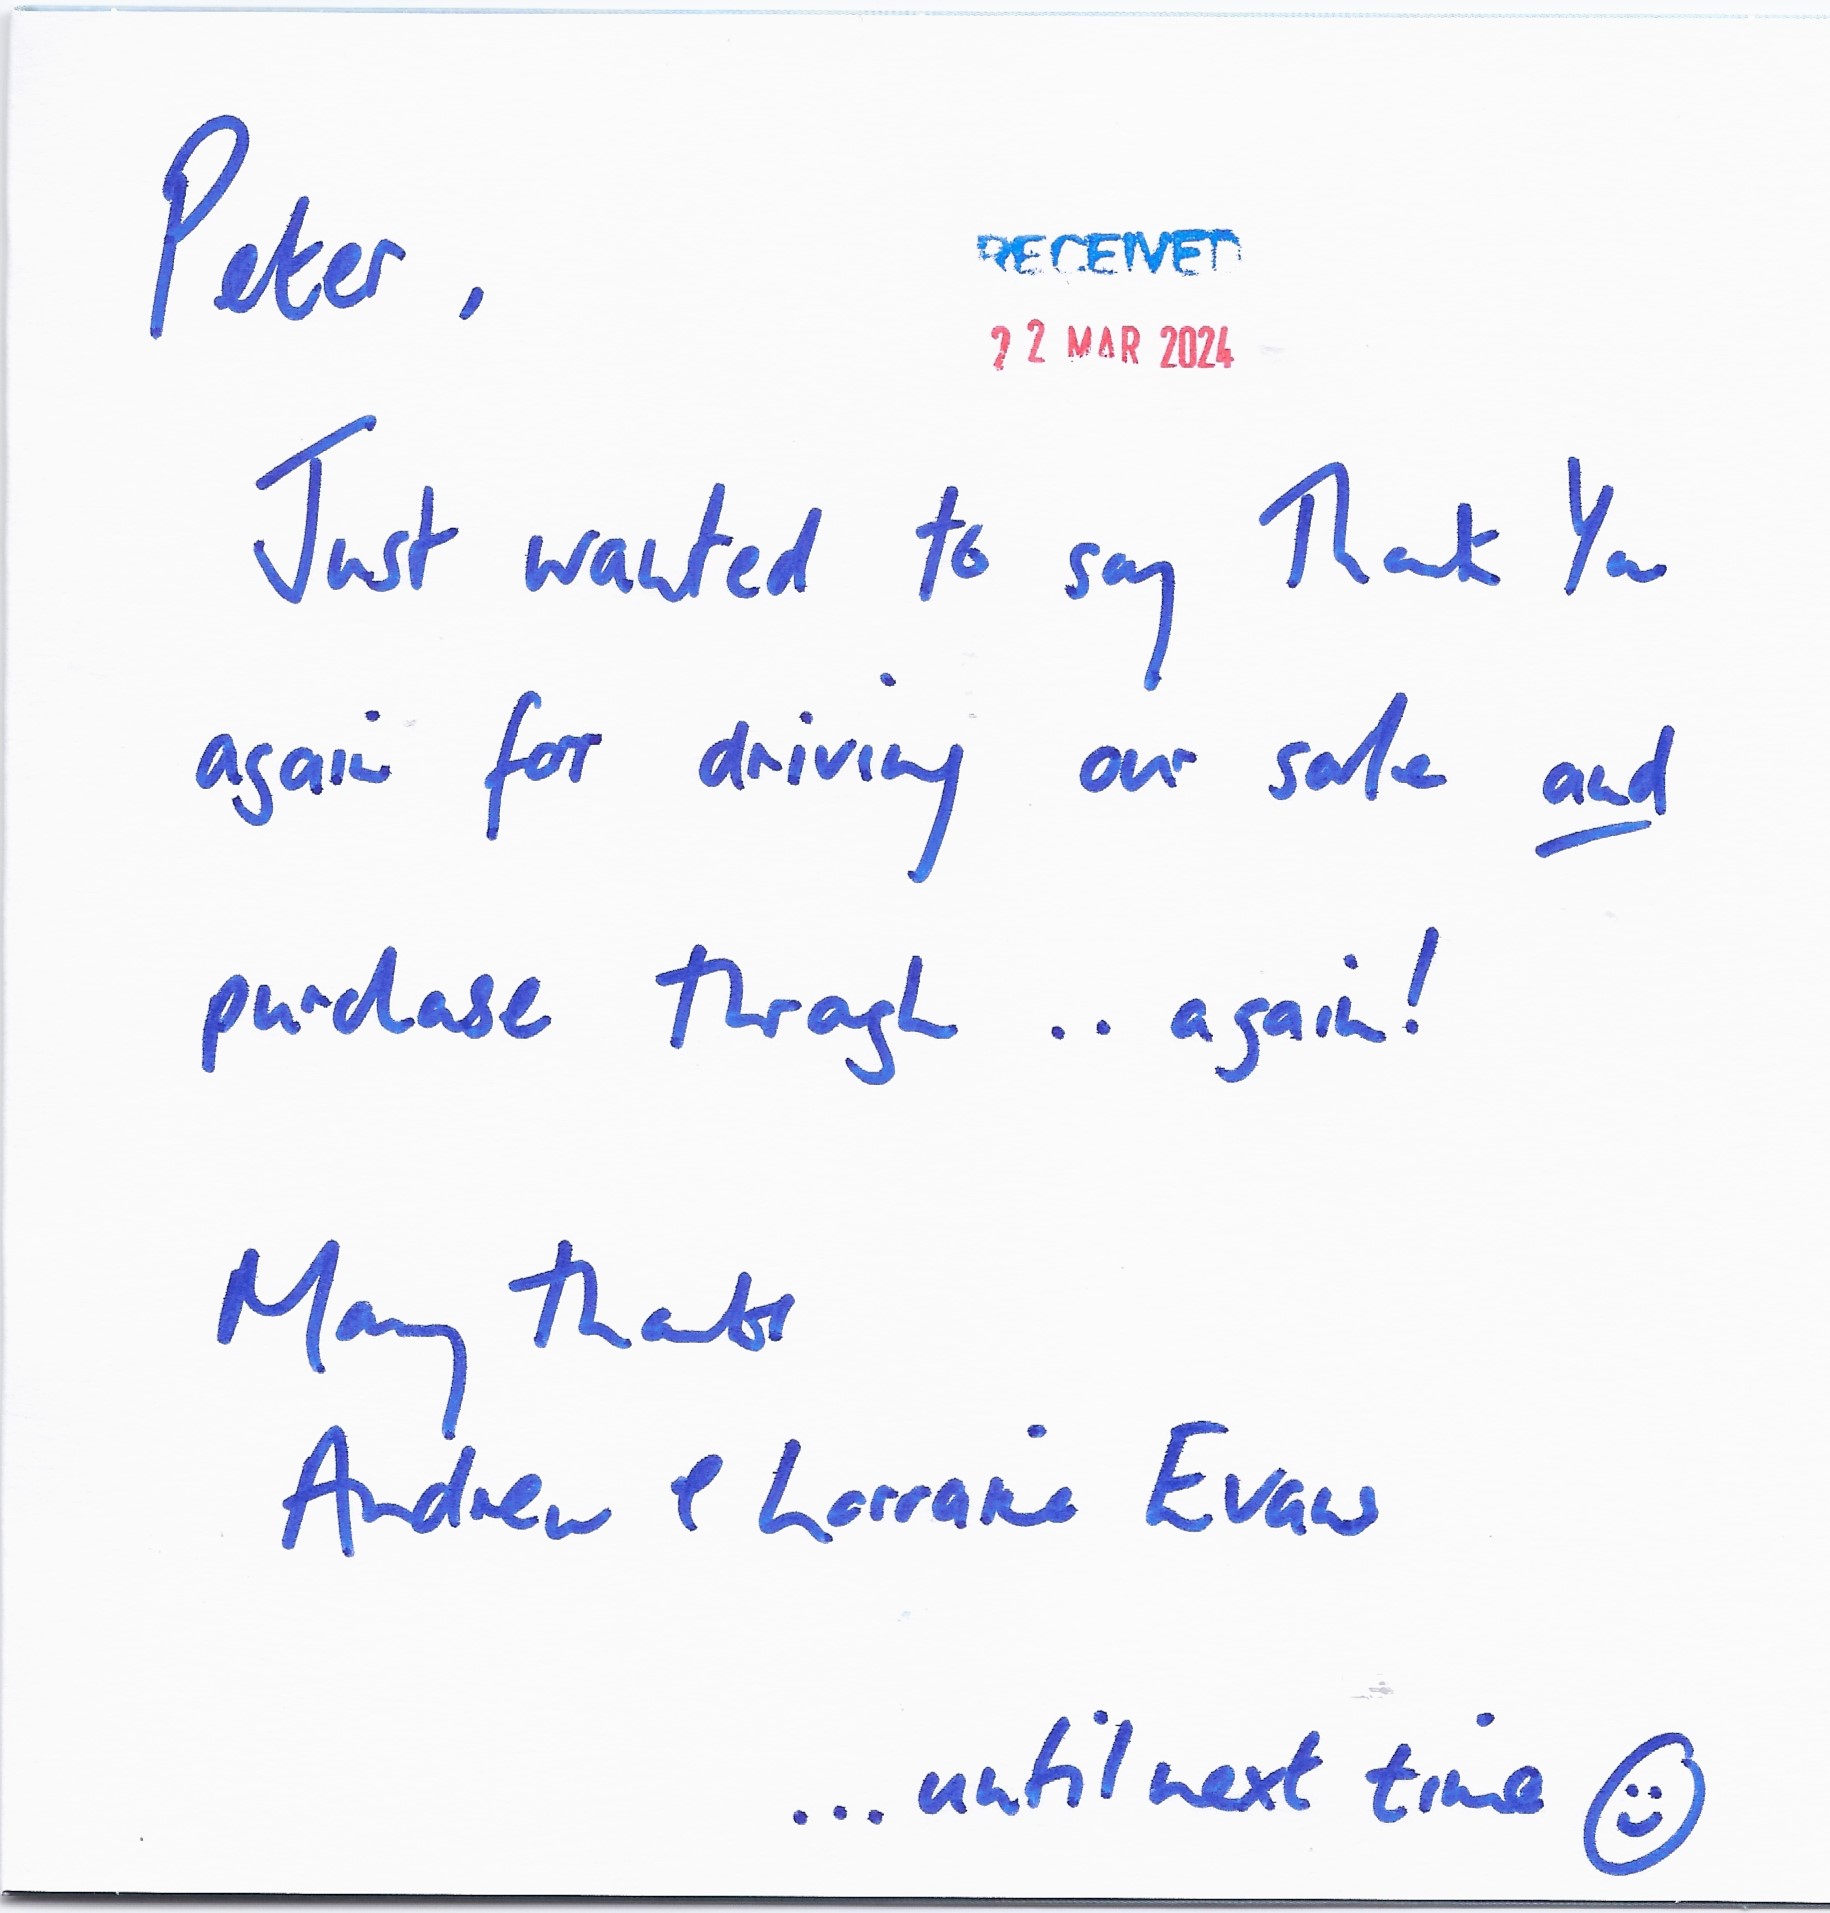 Peter,
RECEIVED
22 MAR 2024
Just wanted to say Thank You
again for driving our sale and
purchase through .. again!
Many thanks
Andrew & Lorraine Evans
...until next time